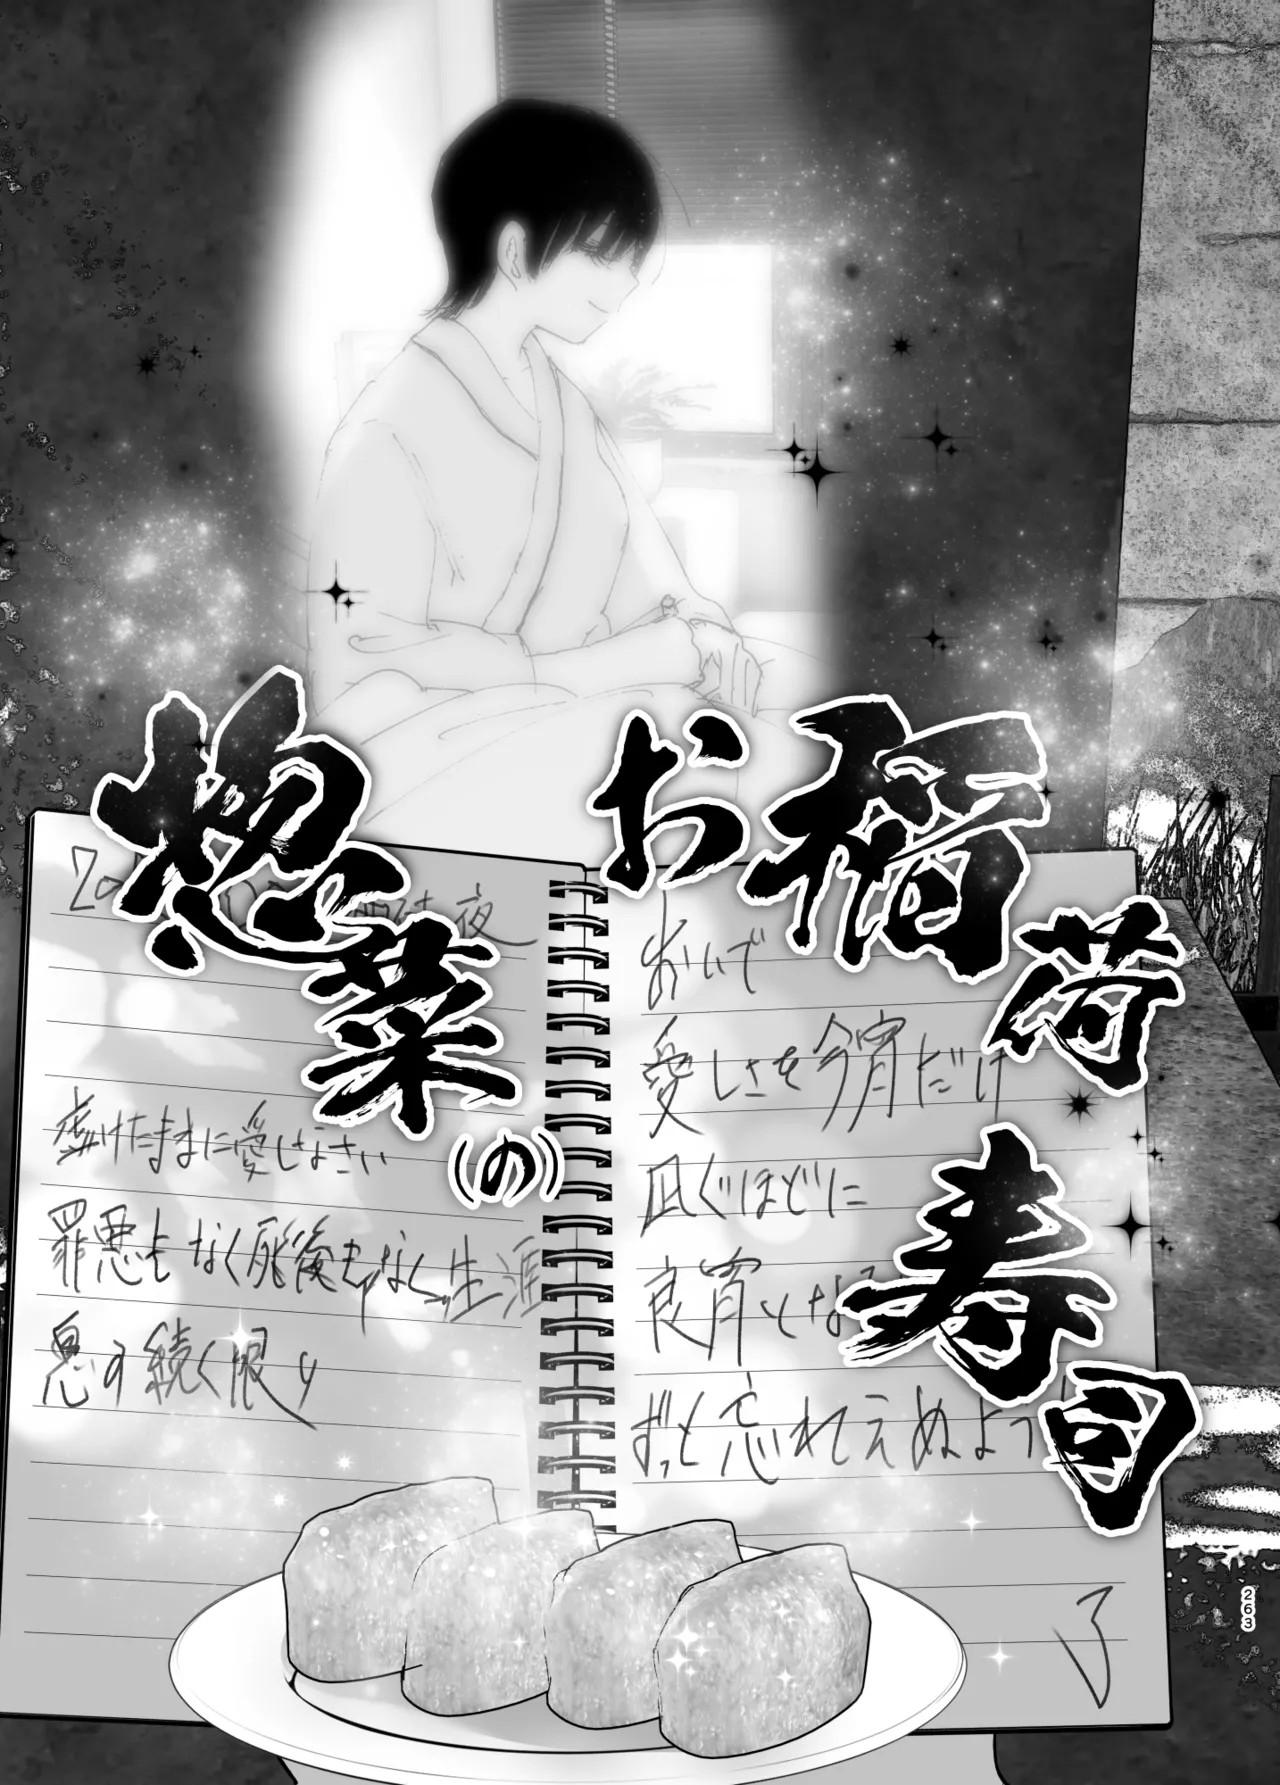 お稲荷寿司
惣菜の
おいで
愛しさを今宵だけ
凪ぐほどに
良宵とな
ずっと忘れえぬよう
了
夜
虚けたままに愛しなさい
罪悪もなく死後もなく生涯
息す続く限り
263